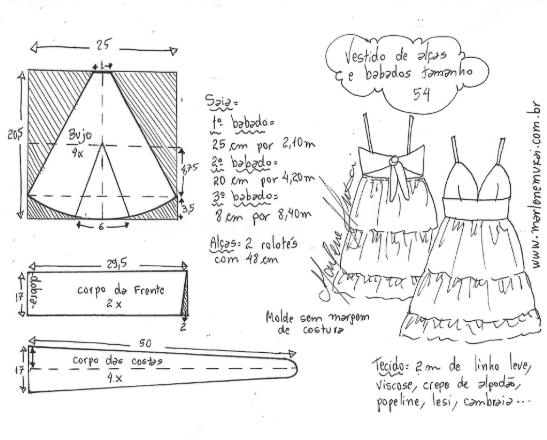 25
1
20,5
Bujo
4x
4,75
3,5
6
Saia=
1º babado=
25 cm por 2,10m
2º babado=
20 cm por 4,20m
3º babado=
8 cm por 8,40m
Alças: 2 rolotês
com 48 cm
29,5
17
dobra
corpo da Frente
2x
2
50
17
corpo das costas
4x
Molde sem margem
de costura
Vestido de alças
e babados tamanho
54
Marlene Mukai
www.marlenemukai.com.br
Tecido: 2 m de linho leve,
viscose, crepe de algodão,
popeline, lesi, cambraia...